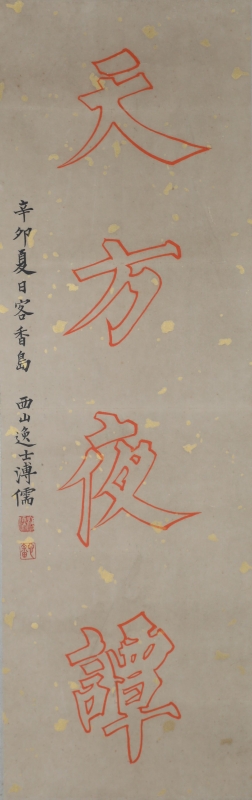 天方夜譚
辛卯夏日客香島 西山逸士溥儒